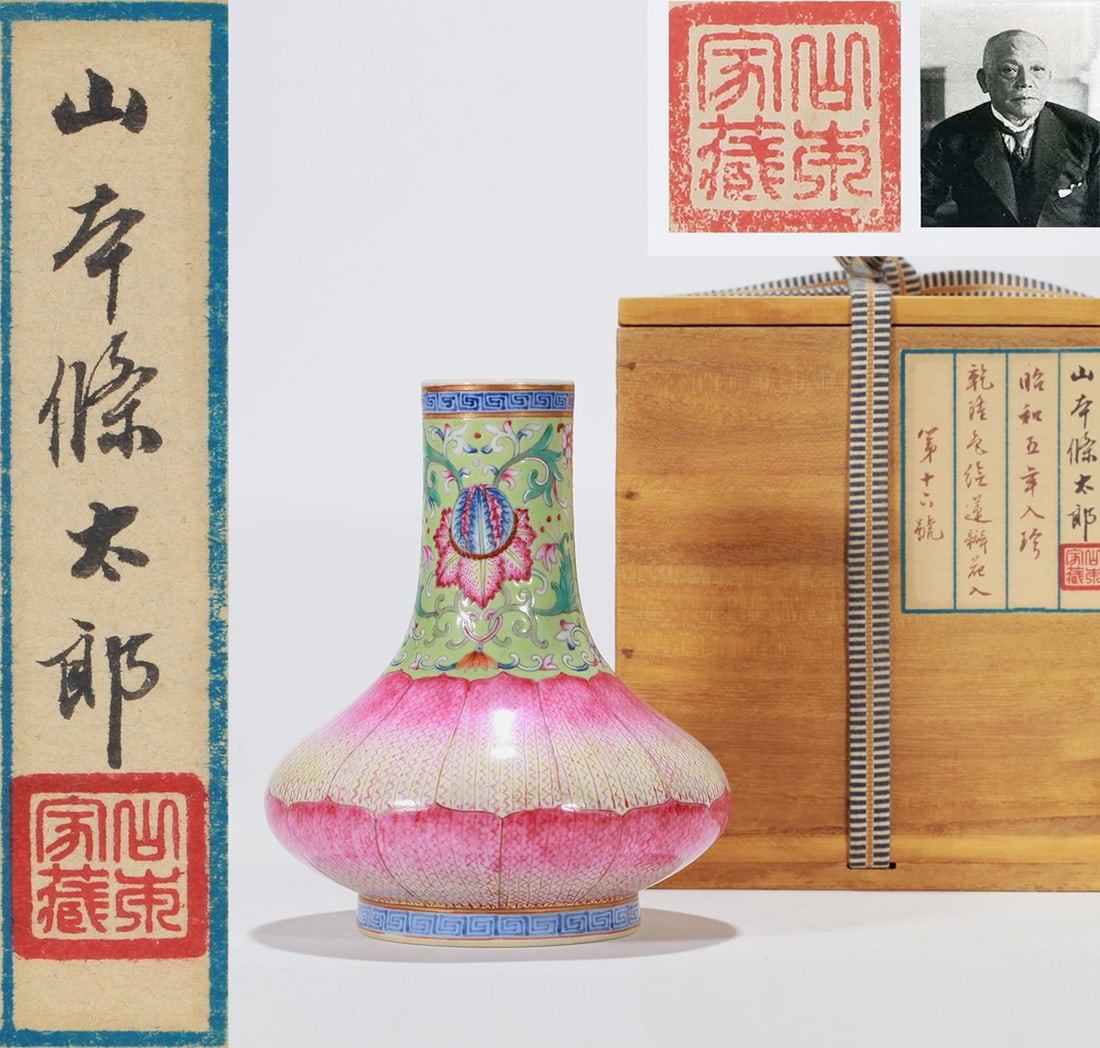 山本條太郎
山本家藏
山本家藏
山本條太郎
山本家藏
昭和五年入珍
乾隆色绘蓮瓣花入
第十六號